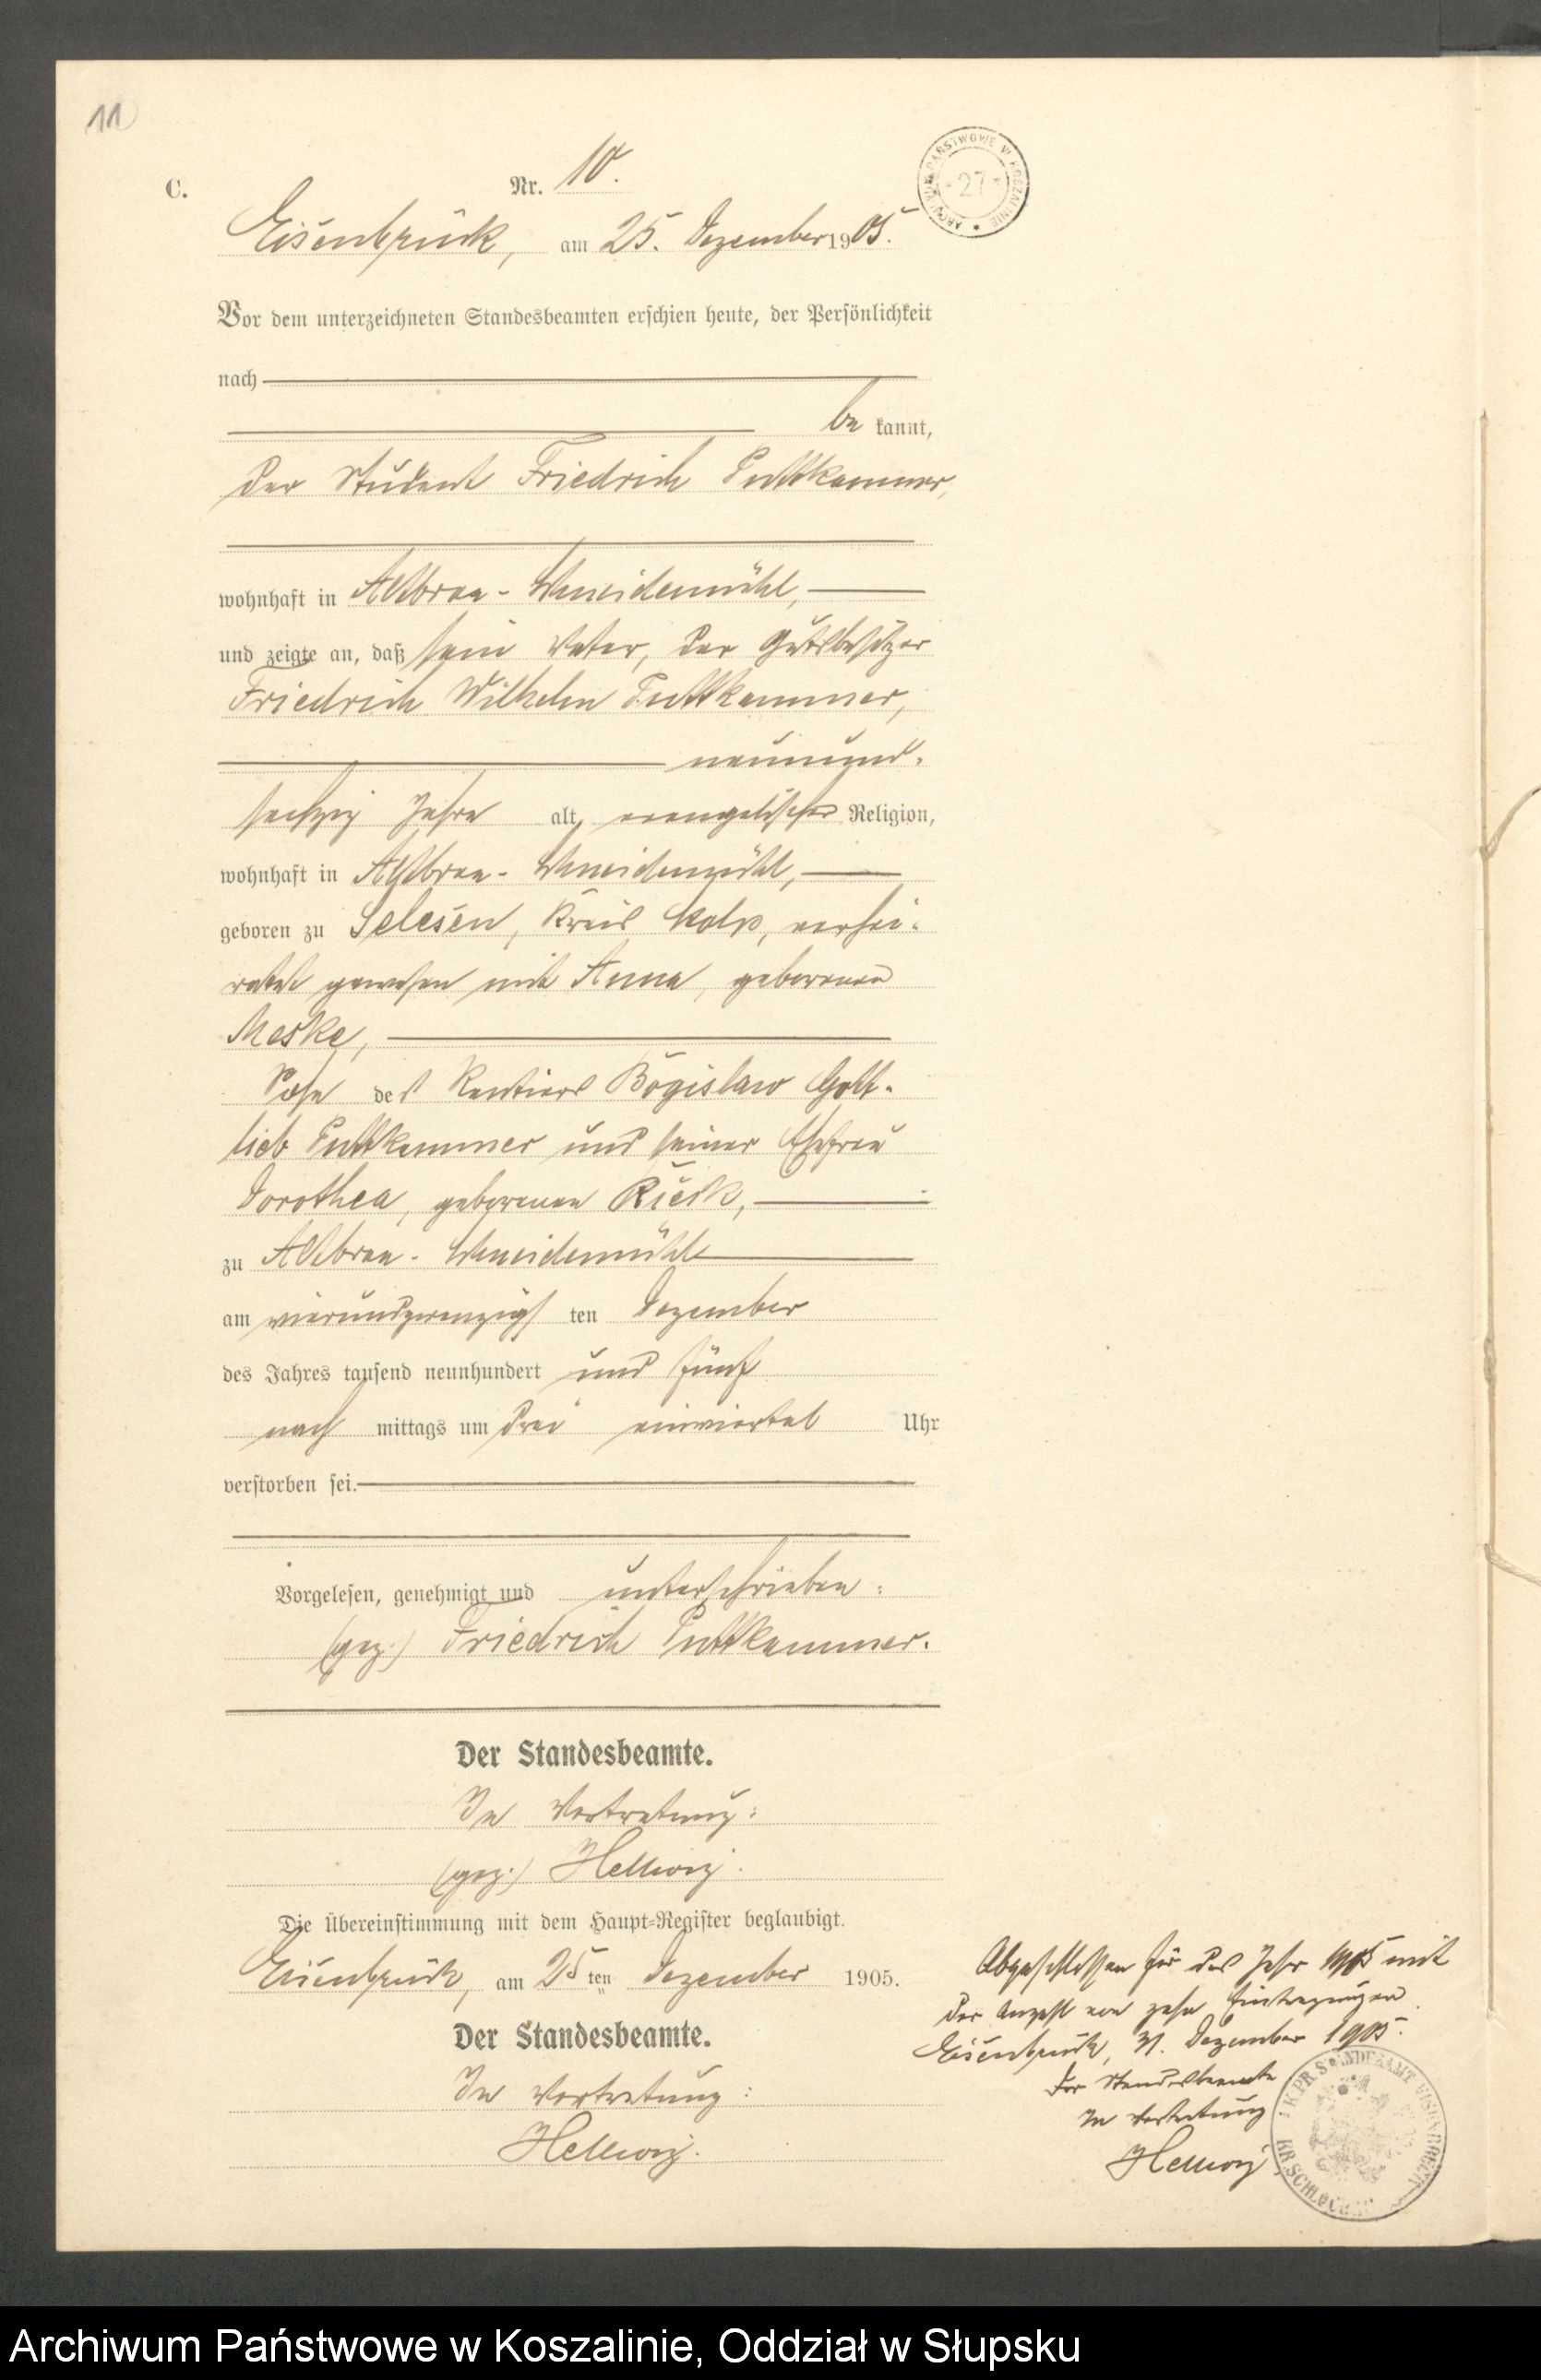 11
C.
Nr. 10.
ARCHIWUM PAŃSTWOWE W KOSZALINIE
* 27 *
Eisenbrück, am 25. Dezember 1905.
Vor dem unterzeichneten Standesbeamten erschien heute, der Persönlichkeit
nach
be kannt,
der Student Friedrich Puttkammer,
wohnhaft in Altbraa-Schneidemühl,
und zeigte an, daß sein Vater, der Gutsbesitzer
Friedrich Wilhelm Puttkammer,
neunund-
sechzig Jahre alt, evangelischer Religion,
wohnhaft in Altbraa-Schneidemühl,
geboren zu Selesen, Kreis Stolp, verhei-
ratet gewesen mit Anna, geborenen
Meske,
Sohn des Rentiers Bogislaw Gott-
lieb Puttkammer und seiner Ehefrau
Dorothea, geborenen Rück,
zu Altbraa-Schneidemühl
am vierundzwanzigs ten Dezember
des Jahres tausend neunhundert und fünf
nach mittags um drei einviertel Uhr
verstorben sei.
Vorgelesen, genehmigt und unterschrieben:
(gez.) Friedrich Puttkammer.
Der Standesbeamte.
In Vertretung:
(gez.) Hellwig.
Die Übereinstimmung mit dem Haupt-Register beglaubigt.
Eisenbrück, am 25 ten Dezember 1905.
Der Standesbeamte.
In Vertretung:
Hellwig.
Abgeschlossen für das Jahr 1905 mit
der Anzahl von zehn Eintragungen
Eisenbrück, 31. Dezember 1905.
Der Standesbeamte
In Vertretung
Hellwig
K. PR. STANDESAMT EISENBRÜCK
KR. SCHLOCHAU
Archiwum Państwowe w Koszalinie, Oddział w Słupsku